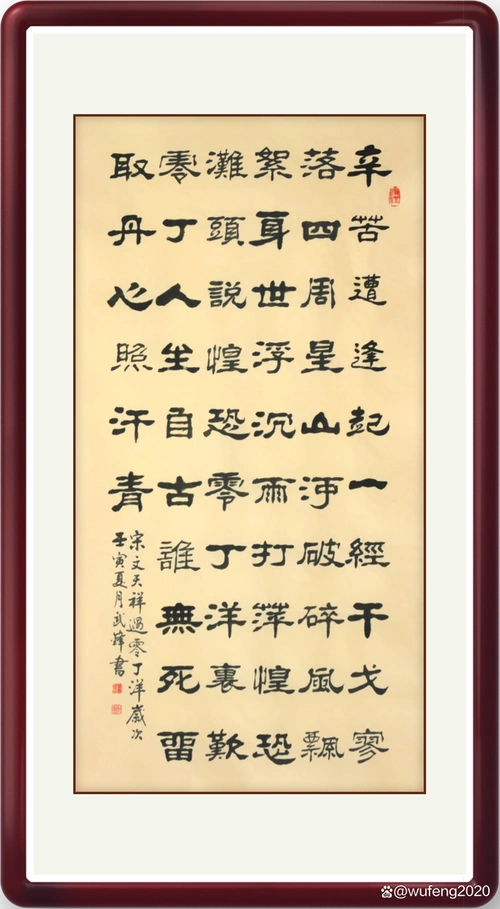 辛苦遭逢起一經干戈寥
落四周星山河破碎風飄
絮身世浮沉雨打萍惶恐
灘頭說惶恐零丁洋裏歎
零丁人生自古誰無死留
取丹心照汗青
宋文天祥過零丁洋歲次
壬寅夏月武鋒書
@wufeng2020